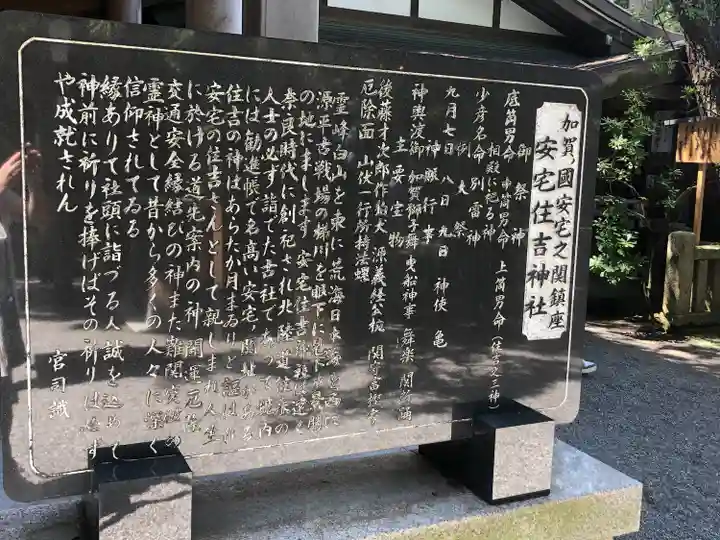 加賀國安宅之関鎮座
安宅住吉神社
御祭神
底筒男命 中筒男命 上筒男命(住吉之三神)
相殿に祀る神
少彦名命 別雷神
例大祭
九月七日 八日 九日 神使 亀
神賑行事
神輿渡御 加賀獅子舞 曳船神事 舞楽
主要宝物
後藤才次郎作 狛犬 源義経公
厄除面 山伏一行所持法螺
霊峰白山を東に 荒海日本海を西に
源平古戦場の梯川を眼下に
の地にまします 安宅住吉
奈良時代に創祀され 北陸道往来の
人士の必ず詣でた古社であって 境内
には勧進帳で名高い安宅ノ関址がある
住吉の神はあらたか
安宅の住吉さんとして親しまれ 人生
に於ける道先案内の神 開運厄除
交通安全 縁結びの神 また難関突破の
霊神として昔から多くの人々に深く
信仰されてゐる
縁ありて社頭に詣づる人 誠を込めて
神前に祈りを捧げばその祈りは必ず
や成就されん
宮司識